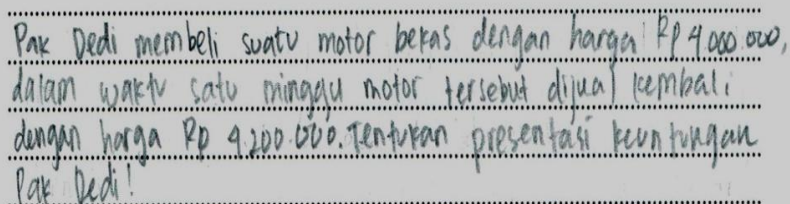 Pak Dedi membeli suatu motor bekas dengan harga Rp 4.000.000,
dalam waktu satu minggu motor tersebut dijual kembali
dengan harga Rp 4.200.000. Tentukan presentasi keuntungan
Pak Dedi!